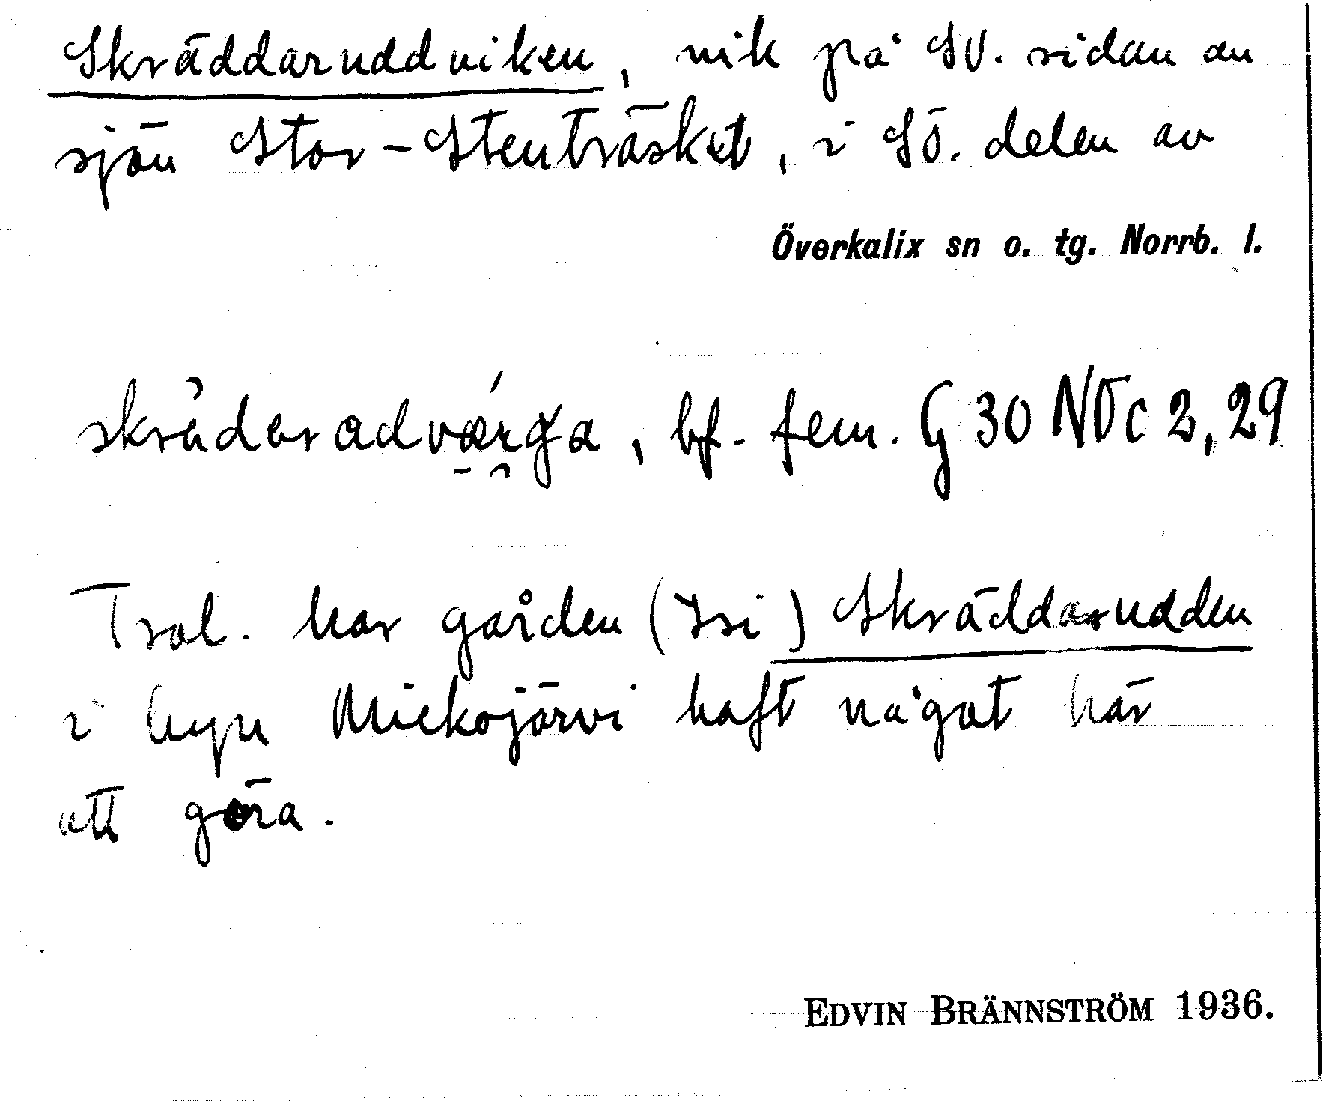 Skräddaruddviken, vik på SV. sidan av
sjön Stor-Stenträsket, i SÖ. delen av
Överkalix sn o. tg. Norrb. l.
bf. fem. G 30 NVc 2, 29
Trol. har gården (Isi) Skräddarudden
i byn Miekojärvi haft något här
att göra.
EDVIN BRÄNNSTRÖM 1936.